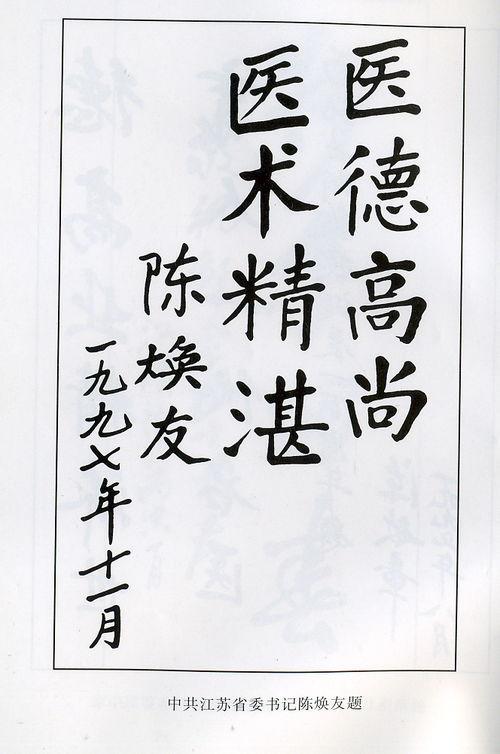 医德高尚
医术精湛
陈焕友
一九九七年十一月
中共江苏省委书记陈焕友题